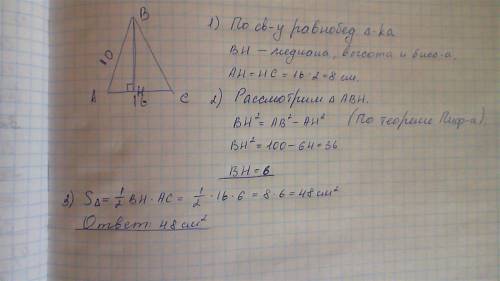 B
10
A
H
16
C
1) По св-у равнобед. Δ-ка
BH – медиана, высота и бисс-а.
AH = HC = 16 : 2 = 8 см.
2) Рассмотрим Δ ABH.
BH² = AB² – AH² (По теореме Пиф-а).
BH² = 100 – 64 = 36
BH = 6
3) SΔ = 1/2 BH · AC = 1/2 · 16 · 6 = 8 · 6 = 48 см²
Ответ: 48 см²